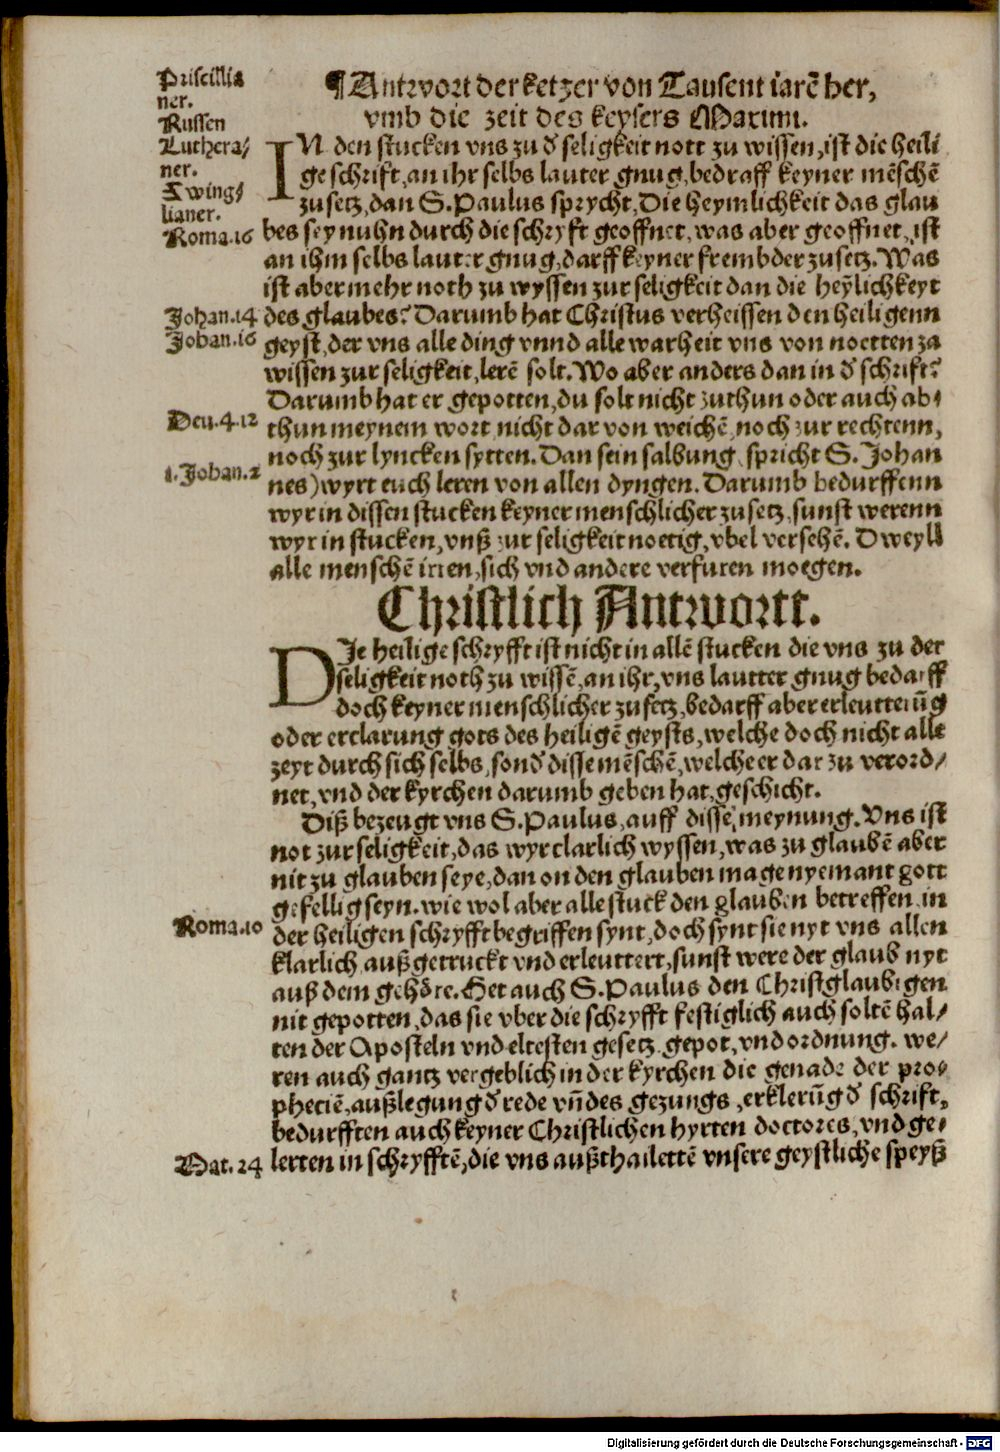 Priscillia
ner.
Russen
Luthera⸗
ner.
Zwing⸗
lianer.
Roma.16
Johan.14
Johan.16
Deu.4.12
1.Johan.2
Roma.10
Mat.24
¶Antwort der ketzer von Tausent iarē her,
vmb die zeit des keysers Maximi.
IN den stucken vns zu d̄ seligkeit nott zu wissen, ist die heili
ge schrift, an ihr selbs lauter gnug, bedraff keyner mēschē
zusetz, dan S. Paulus sprycht, Die heymlichkeit das glau
bes sey nuhn durch die schryft geoffnet, was aber geoffnet, ist
an ihm selbs lauter gnug, darff keyner frembder zusetz. Was
ist aber mehr noth zu wyssen zur seligkeit dan die heȳlichkeyt
des glaubes? Darumb hat Christus verheissen den heiligenn
geyst, der vns alle ding vnnd alle warheit vns von noetten za
wissen zur seligkeit, lerē solt. Wo aber anders dan in d̄ schrift?
Darumb hat er gepotten, du solt nicht zuthun oder auch ab⸗
thun meynem wort nicht dar von weichē, noch zur rechtenn,
noch zur lyncken sytten. Dan sein salbung spricht S. Johan
nes) wyrt euch leren von allen dyngen. Darumb bedurffenn
wyr in dissen stucken keyner menschlicher zusetz, sunst werenn
wyr in stucken, vnß zur seligkeit noetig, vbel versehē. Dweyll
alle menschē irren, sich vnd andere verfuren moegen.
Christlich Antwortt.
DIe heilige schryfft ist nicht in allē stucken die vns zu der
seligkeit noth zu wissē, an ihr, vns lautter gnug bedarff
doch keyner menschlicher zusetz, bedarff aber erleutterūg
oder erclarung gots des heiligē geysts, welche doch nicht alle
zeyt durch sich selbs, sond̄ disse mēschē, welche er dar zu verord⸗
net, vnd der kyrchen darumb geben hat, geschicht.
Diß bezeugt vns S. Paulus, auff dissē meynung. Vns ist
not zur seligkeit, das wyr clarlich wyssen, was zu glaubē aber
nit zu glauben seye, dan on den glauben mage nyemant gott
gefellig seyn. wie wol aber alle stuck den glauben betreffen in
der heiligen schryfft begriffen synt, doch synt sie nyt vns allen
klarlich außgetruckt vnd erleuttert, sunst were der glaub nyt
auß dem gehöre. Het auch S. Paulus den Christglaubigen
nit gepotten, das sie vber die schryfft festiglich auch soltē hal⸗
ten der Aposteln vnd eltesten gesetz gepot, vnd ordnung. we⸗
ren auch gantz vergeblich in der kyrchen die genade der pro⸗
pheciē, außlegung d̄ rede vn̄ des gezungs, erklerūg d̄ schrift,
bedurfften auch keyner Christlichen hyrten doctores, vnd ge⸗
lerten in schryfftē, die vns außthailettē vnsere geystliche speyß
Digitalisierung gefördert durch die Deutsche Forschungsgemeinschaft - DFG